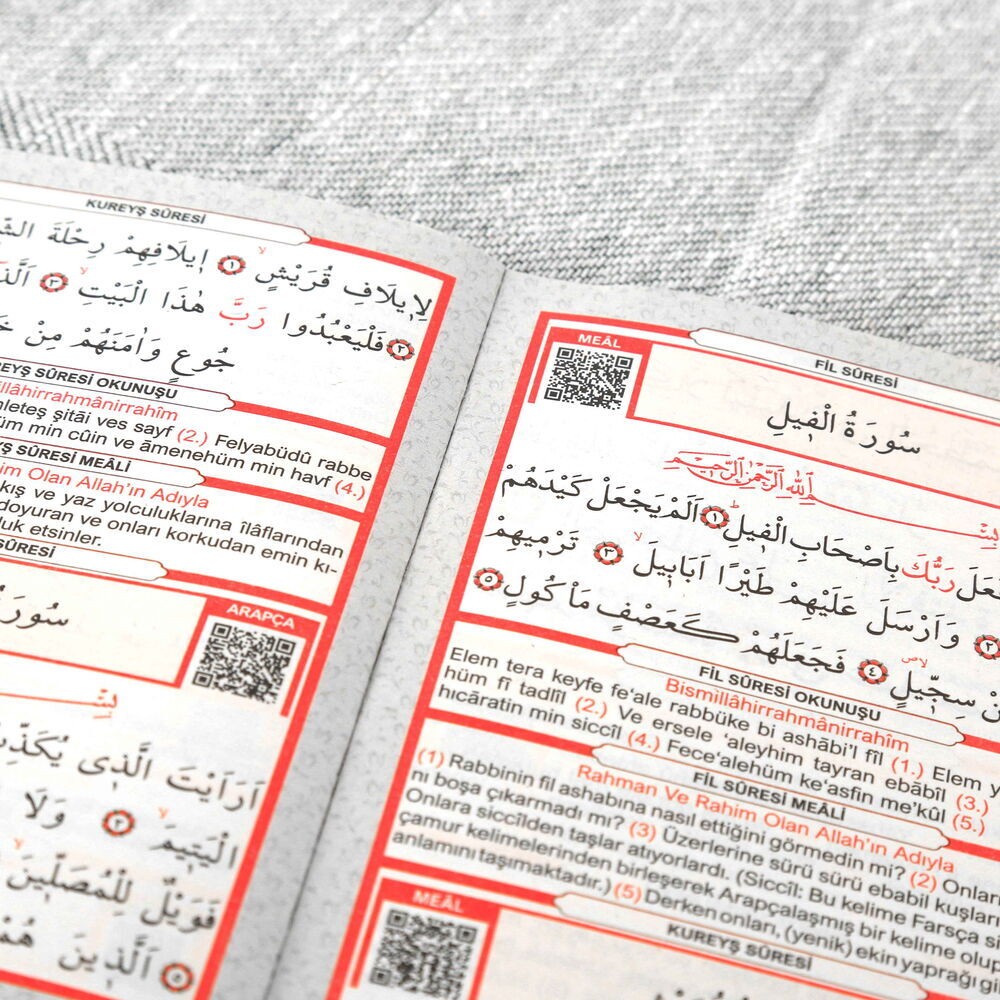 KUREYŞ SÛRESİ
لِا۪يلَافِ قُرَيْشٍ ﴿١﴾ ا۪يلَافِهِمْ رِحْلَةَ
﴿٢﴾ فَلْيَعْبُدُوا رَبَّ هٰذَا الْبَيْتِ ﴿٣﴾
جُوعٍ وَاٰمَنَهُمْ مِنْ
SÛRESİ OKUNUŞU
şitâi ves sayf (2.) Felyabüdû rabbe
min cûin ve âmenehüm min havf (4.)
SÛRESİ MEÂLİ
Olan Allah'ın Adıyla
kış ve yaz yolculuklarına îlâflarından
doyuran ve onları korkudan emin kı-
etsinler.
SÛRESİ
ARAPÇA
اَرَاَيْتَ الَّذ۪ى
الْيَت۪يمَ ﴿٢﴾ وَلَا
فَوَيْلٌ لِلْمُصَلّ۪ينَ
﴿٥﴾ اَلَّذ۪ينَ هُمْ
MEÂL
FİL SÛRESİ
سُورَةُ الْف۪يلِ
اللّٰهِ الرَّحْمٰنِ الرَّح۪يمِ
رَبُّكَ بِاَصْحَابِ الْف۪يلِ ﴿١﴾ اَلَمْ يَجْعَلْ كَيْدَهُمْ
﴿٢﴾ وَاَرْسَلَ عَلَيْهِمْ طَيْرًا اَبَاب۪يلَ ﴿٣﴾ تَرْم۪يهِمْ
سِجّ۪يلٍ ﴿٤﴾ فَجَعَلَهُمْ كَعَصْفٍ مَاْكُولٍ ﴿٥﴾
FİL SÛRESİ OKUNUŞU
Bismillâhirrahmânirrahîm
Elem tera keyfe fe'ale rabbüke bi ashâbi'l fîl (1.) Elem
hüm fî tadlîl (2.) Ve ersele 'aleyhim tayran ebâbîl (3.)
hıcâratin min siccîl (4.) Fece'alehüm ke'asfin me'kûl (5.)
FİL SÛRESİ MEÂLİ
Rahman Ve Rahim Olan Allah'ın Adıyla
(1) Rabbinin fil ashabına nasıl ettiğini görmedin mi? (2)
nı boşa çıkarmadı mı? (3) Üzerlerine sürü sürü ebabil kuşları
Onlara siccîlden taşlar atıyorlardı. (Siccîl: Bu kelime Farsça
çamur kelimelerinden birleşerek Arapçalaşmış bir kelime olup
anlamını taşımaktadır.) (5) Derken onları, (yenik) ekin yaprağı
MEÂL
KUREYŞ SÛRESİ